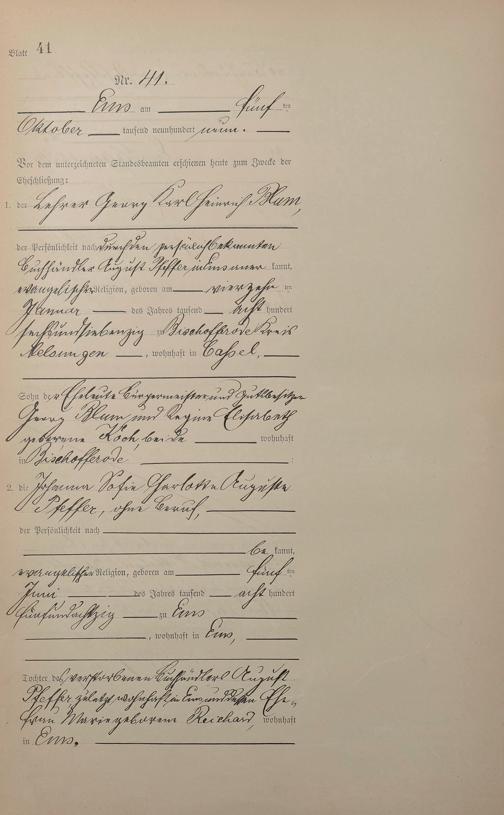 Blatt 41
Nr. 41.
Ems am fünf ten
Oktober tausend neunhundert neun.
Vor dem unterzeichneten Standesbeamten erschienen heute zum Zwecke der
Eheschließung:
1. der Lehrer Georg Karl Heinrich Blum,
der Persönlichkeit nach durch den persönlich bekannten
Buchhändler August Pfeffer in Ems anerkannt,
evangelischer Religion, geboren am vierzehn ten
Januar des Jahres tausend acht hundert
sechsundsiebenzig zu Bischofferode Kreis
Melsungen, wohnhaft in Cassel,
Sohn der Eheleute Bürgermeister und Gutsbesitzer
Georg Blum und Regine Elisabeth
geborene Koch, beide wohnhaft
in Bischofferode :
2. die Johanna Sofie Charlotte Auguste
Pfeffer, ohne Beruf,
der Persönlichkeit nach
be kannt,
evangelischer Religion, geboren am fünf ten
Juni des Jahres tausend acht hundert
fünfundachtzig zu Ems
, wohnhaft in Ems,
Tochter des verstorbenen Buchhändlers August
Pfeffer, zuletzt wohnhaft in Ems und dessen Ehe-
frau Marie geborene Reichard, wohnhaft
in Ems.